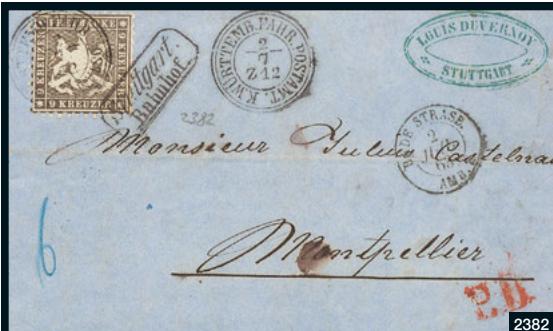 FREIMARKE
9 KREUZER
Stuttgart.
Bahnhof.
K.WÜRTTEMB.FAHR.POSTAMT.
2
7
Z 12
LOUIS DUVERNOY
STUTTGART
2382
STRASB.
2
AMB.
Monsieur Jules Castelnau
Montpellier
6
P.D.
2382